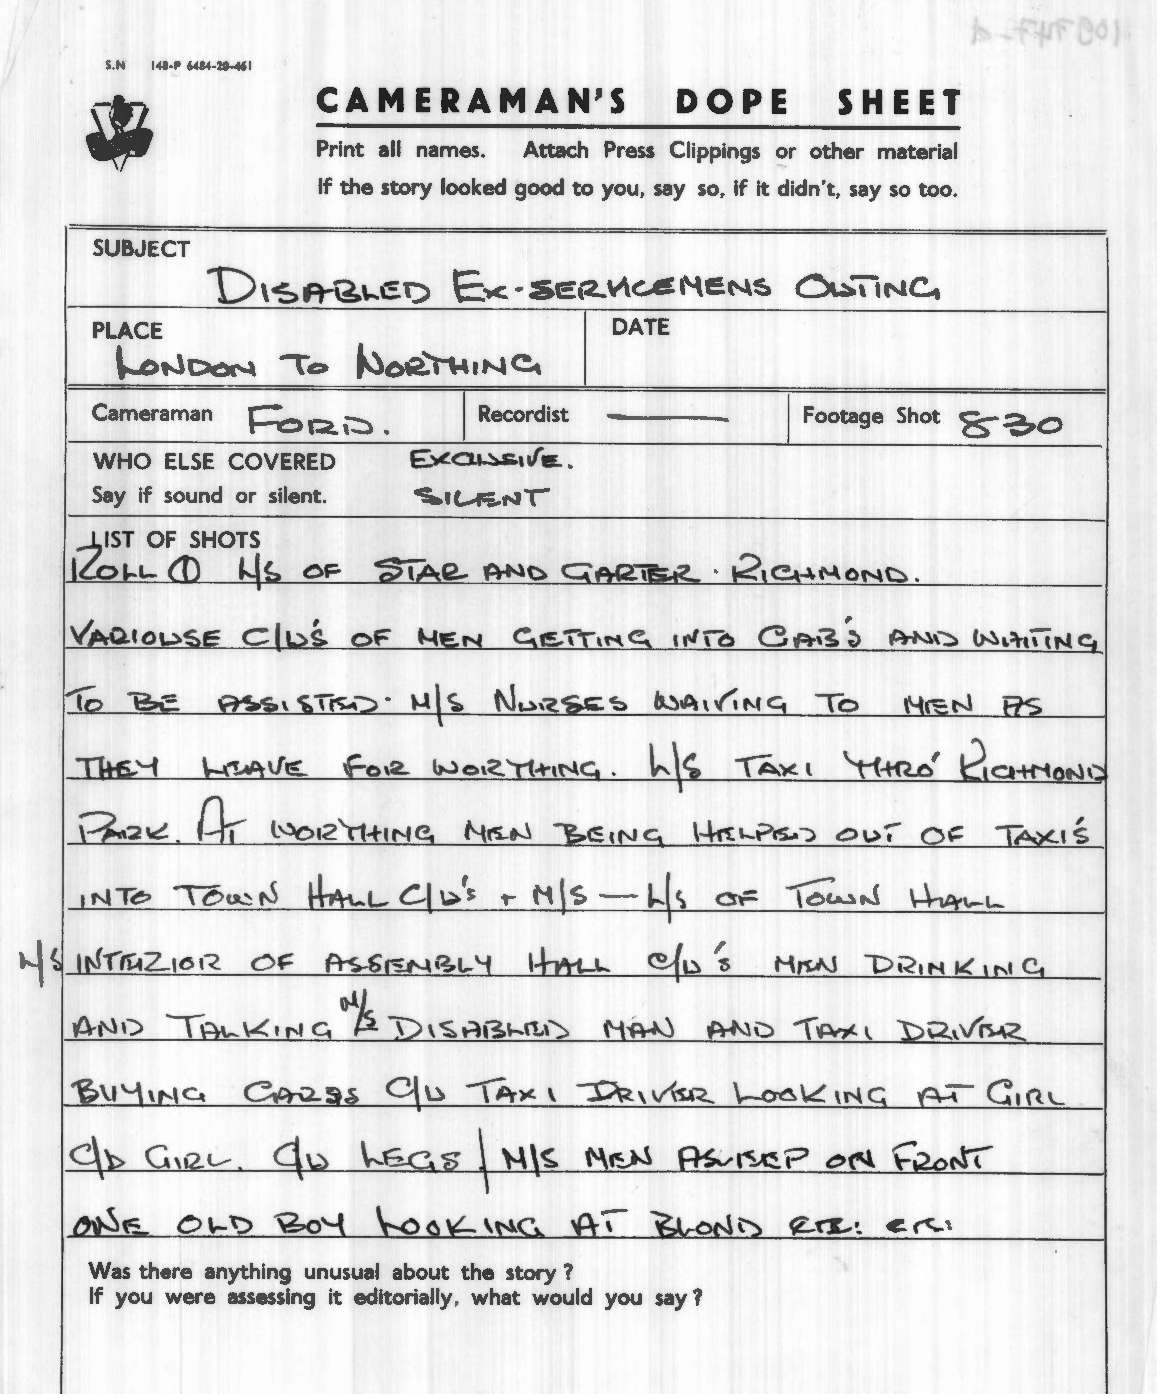 S.N 148-P 6484-20-461
CAMERAMAN'S DOPE SHEET
Print all names. Attach Press Clippings or other material
If the story looked good to you, say so, if it didn't, say so too.
SUBJECT
DISABLED EX-SERVICEMENS OUTING
PLACE
DATE
LONDON TO WORTHING
Cameraman FORD. Recordist — Footage Shot 830
WHO ELSE COVERED EXCLUSIVE.
Say if sound or silent. SILENT
LIST OF SHOTS
ROLL ① L/S OF STAR AND GARTER. RICHMOND.
VARIOUSE C/U'S OF MEN GETTING INTO CAB'S AND WAITING
TO BE ASSISTED. M/S NURSES WAIVING TO MEN AS
THEY LEAVE FOR WORTHING. L/S TAXI THRO' RICHMOND
PARK. AT WORTHING MEN BEING HELPED OUT OF TAXI'S
INTO TOWN HALL C/U'S + M/S — L/S OF TOWN HALL
L/S INTERIOR OF ASSEMBLY HALL C/U'S MEN DRINKING
AND TALKING M/S DISABLED MAN AND TAXI DRIVER
BUYING CARDS C/U TAXI DRIVER LOOKING AT GIRL
C/U GIRL. C/U LEGS / M/S MEN ASLEEP ON FRONT
ONE OLD BOY LOOKING AT BLOND ETC: ETC:
Was there anything unusual about the story?
If you were assessing it editorially, what would you say?